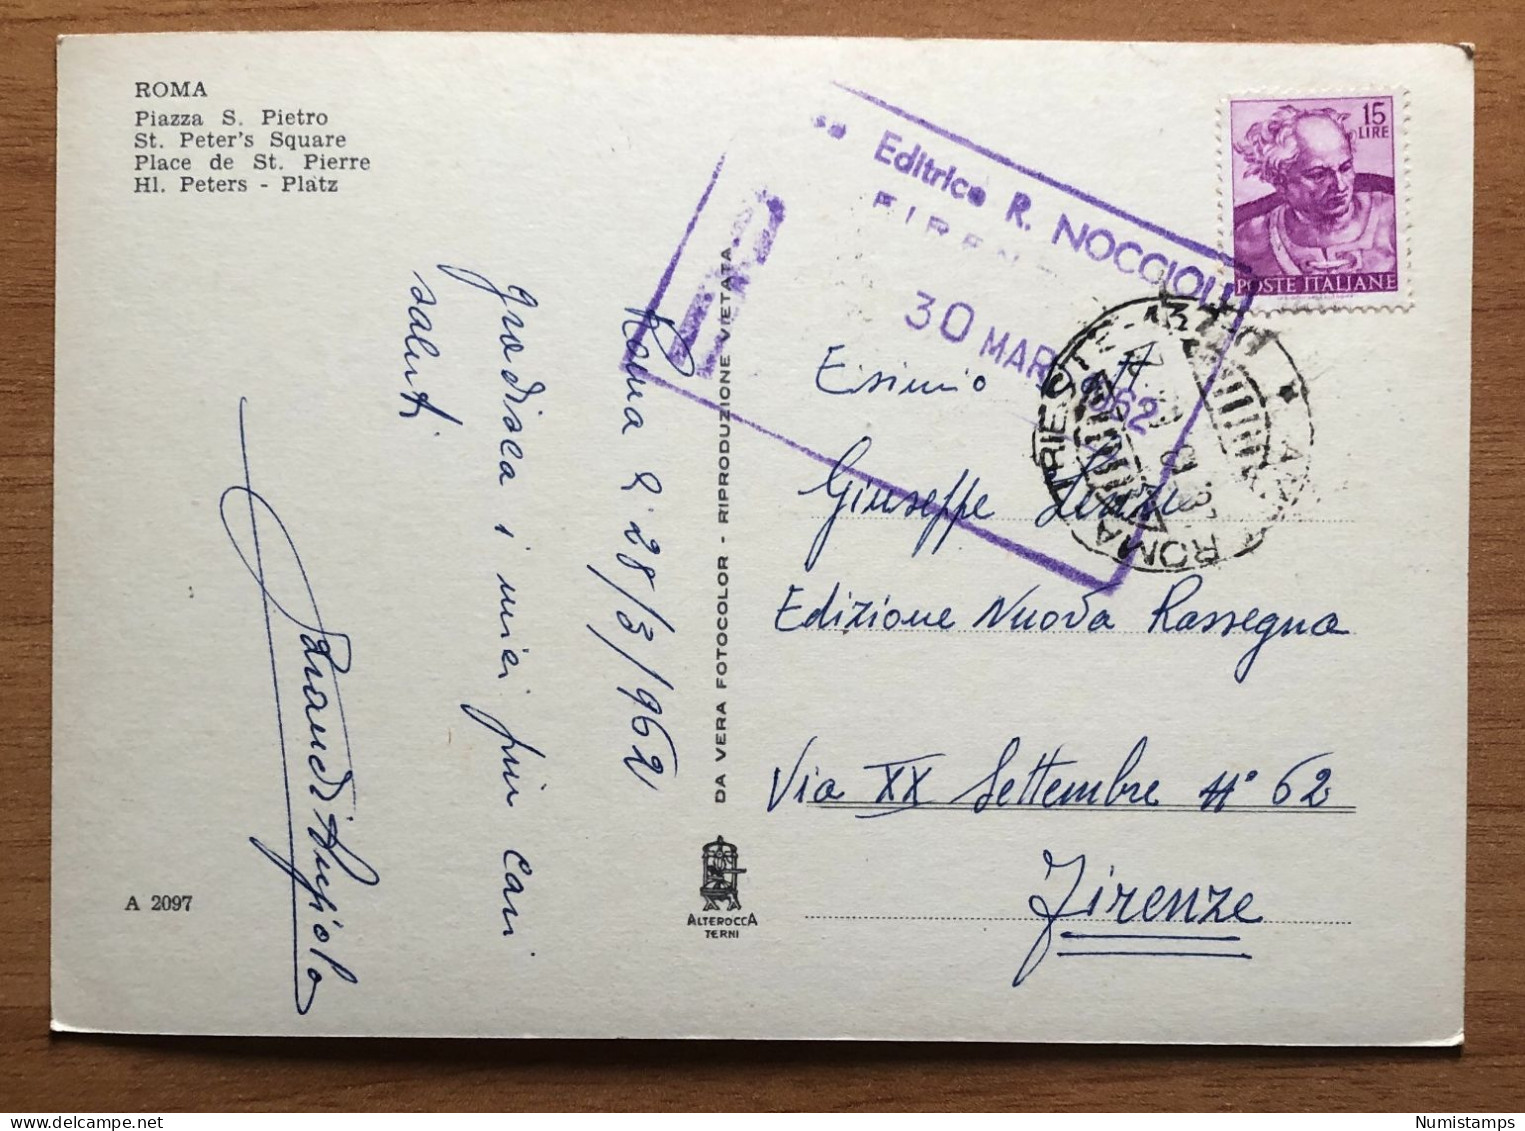 ROMA
Piazza S. Pietro
St. Peter's Square
Place de St. Pierre
Hl. Peters - Platz
Roma lì 28/3/962
Gradisca i miei più cari
saluti
A 2097
DA VERA FOTOCOLOR - RIPRODUZIONE VIETATA
ALTEROCCA
TERNI
Editrice R. NOCCIOLI
FIREN
30 MAR 1962
R
15
LIRE
POSTE ITALIANE
TRIESTE
ROMA
Esimio
Giuseppe
Edizione Nuova Rassegna
Via XX Settembre n° 62
Firenze
delcampe.net
Numistamps